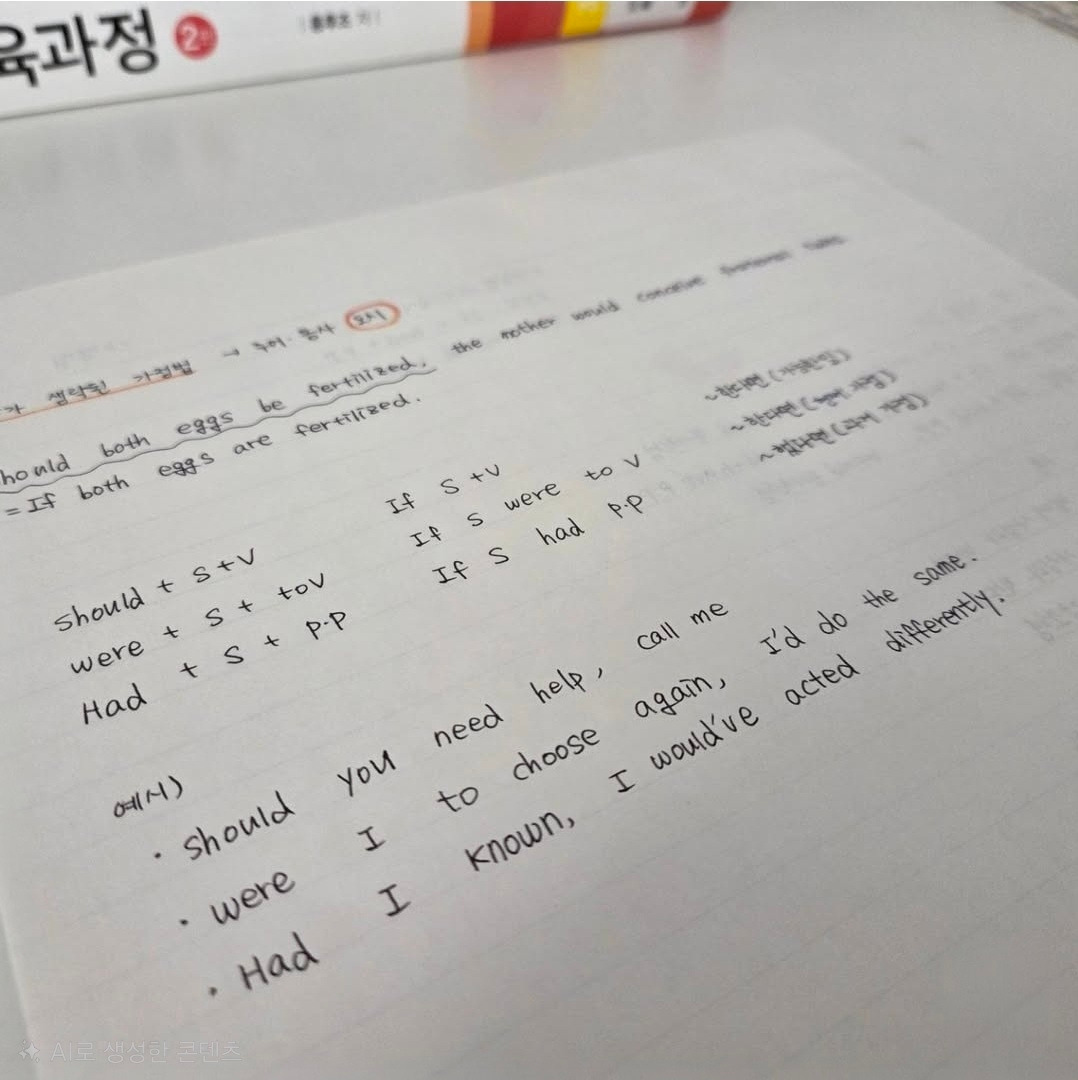 육과정 2판
가 생략된 가정법 → 주어·동사 도치
hould both eggs be fertilized, the mother would conceive fraternal twins
= If both eggs are fertilized.
should + S+V If S+V ~한다면 (가능한일)
were + S + toV If S were to V ~한다면
Had + S + p.p If S had p.p ~했다면 (과거 가정)
예시)
· should you need help, call me
· were I to choose again, I'd do the same.
· Had I known, I would've acted differently.
AI로 생성한 콘텐츠